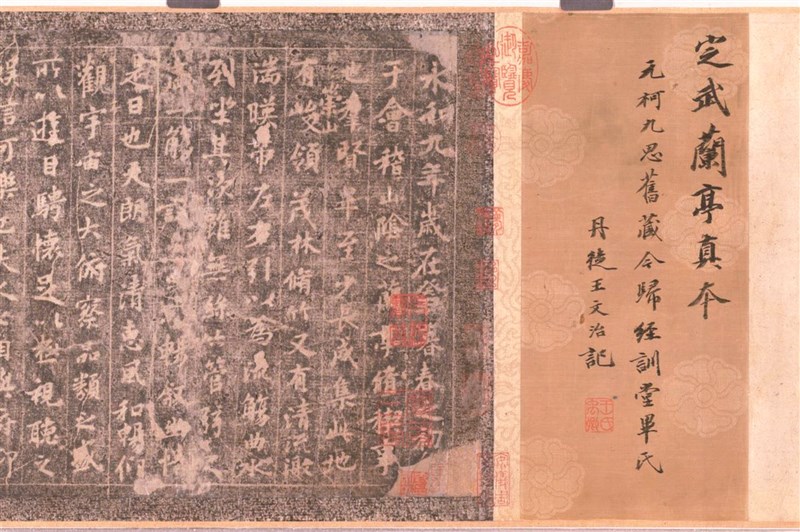 定武蘭亭真本
元柯九思舊藏今歸經訓堂畢氏
丹徒王文治記
嘉慶御覽之寶
永和九年歲在癸丑暮春之初
于會稽山陰之蘭亭脩稧事
也羣賢畢至少長咸集此地
有崇山峻領茂林脩竹又有清流激
湍暎帶左右引以為流觴曲水
列坐其次雖無絲竹管弦之
盛一觴一詠亦足以暢敘幽情
是日也天朗氣清惠風和暢仰
觀宇宙之大俯察品類之盛
所以遊目騁懷足以極視聽之
娛信可樂也夫人之相與俯仰